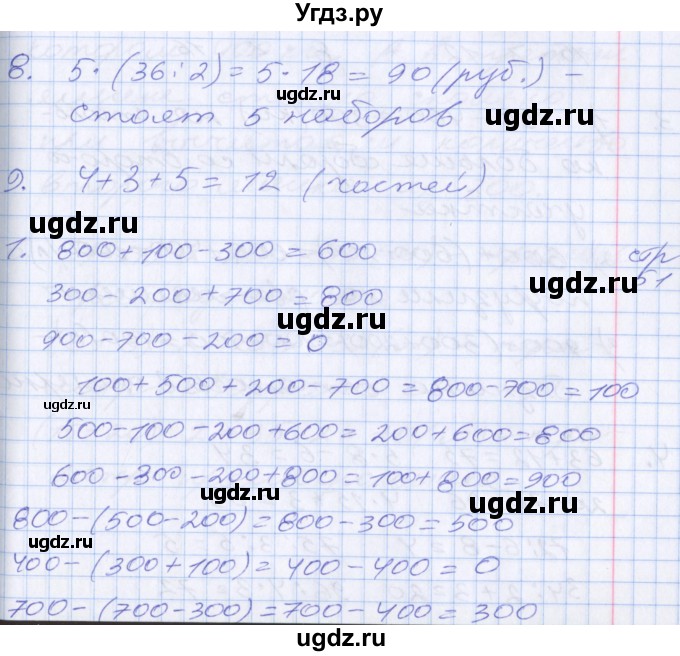 Угдз.ру
8. 5·(36:2)=5·18=90(руб.) –
стоят 5 наборов
9. 4+3+5=12 (частей)
1. 800+100-300=600 стр 51
300-200+700=800
900-700-200=0
100+500+200-700=800-700=100
500-100-200+600=200+600=800
600-300-200+800=100+800=900
800-(500-200)=800-300=500
400-(300+100)=400-400=0
700-(700-300)=700-400=300
ugdz.ru
ugdz.ru
ugdz.ru
ugdz.ru
ugdz.ru
ugdz.ru
ugdz.ru
ugdz.ru
ugdz.ru
ugdz.ru
ugdz.ru
ugdz.ru